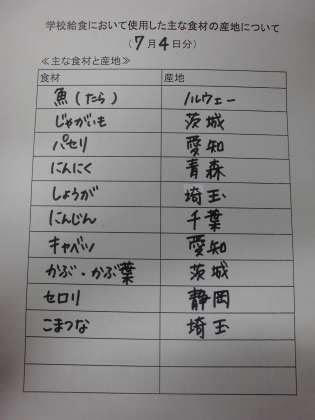 学校給食において使用した主な食材の産地について
(7月4日分)
≪主な食材と産地≫
食材 産地
魚(たら) ノルウェー
じゃがいも 茨城
パセリ 愛知
にんにく 青森
しょうが 埼玉
にんじん 千葉
キャベツ 愛知
かぶ・かぶ葉 茨城
セロリ 静岡
こまつな 埼玉